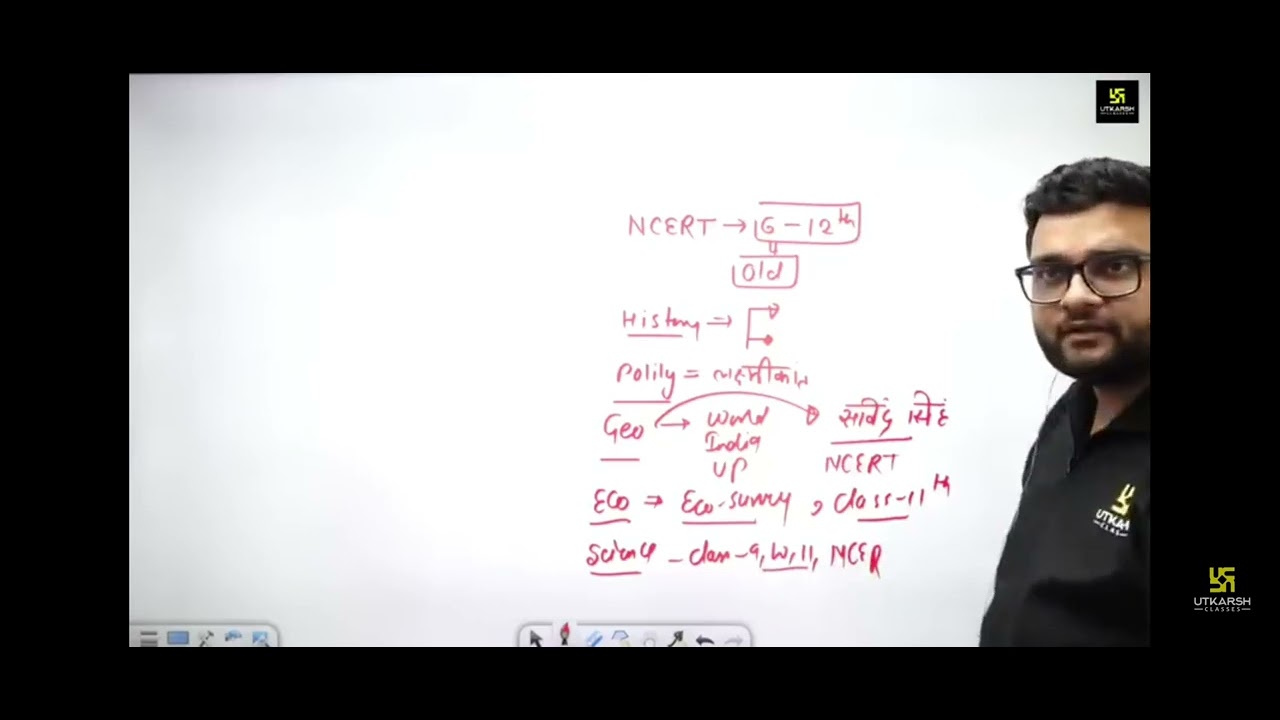 UTKARSH
CLASSES
NCERT → 6 - 12th
Old
History ⇒
Polity = लक्ष्मीकांत
Geo → World
India
UP
सविंद्र सिंह
NCERT
Eco ⇒ Eco-survey, class-11th
Science - class-9, 10, 11, NCER
UTKA
CLAS
UTKARSH
CLASSES